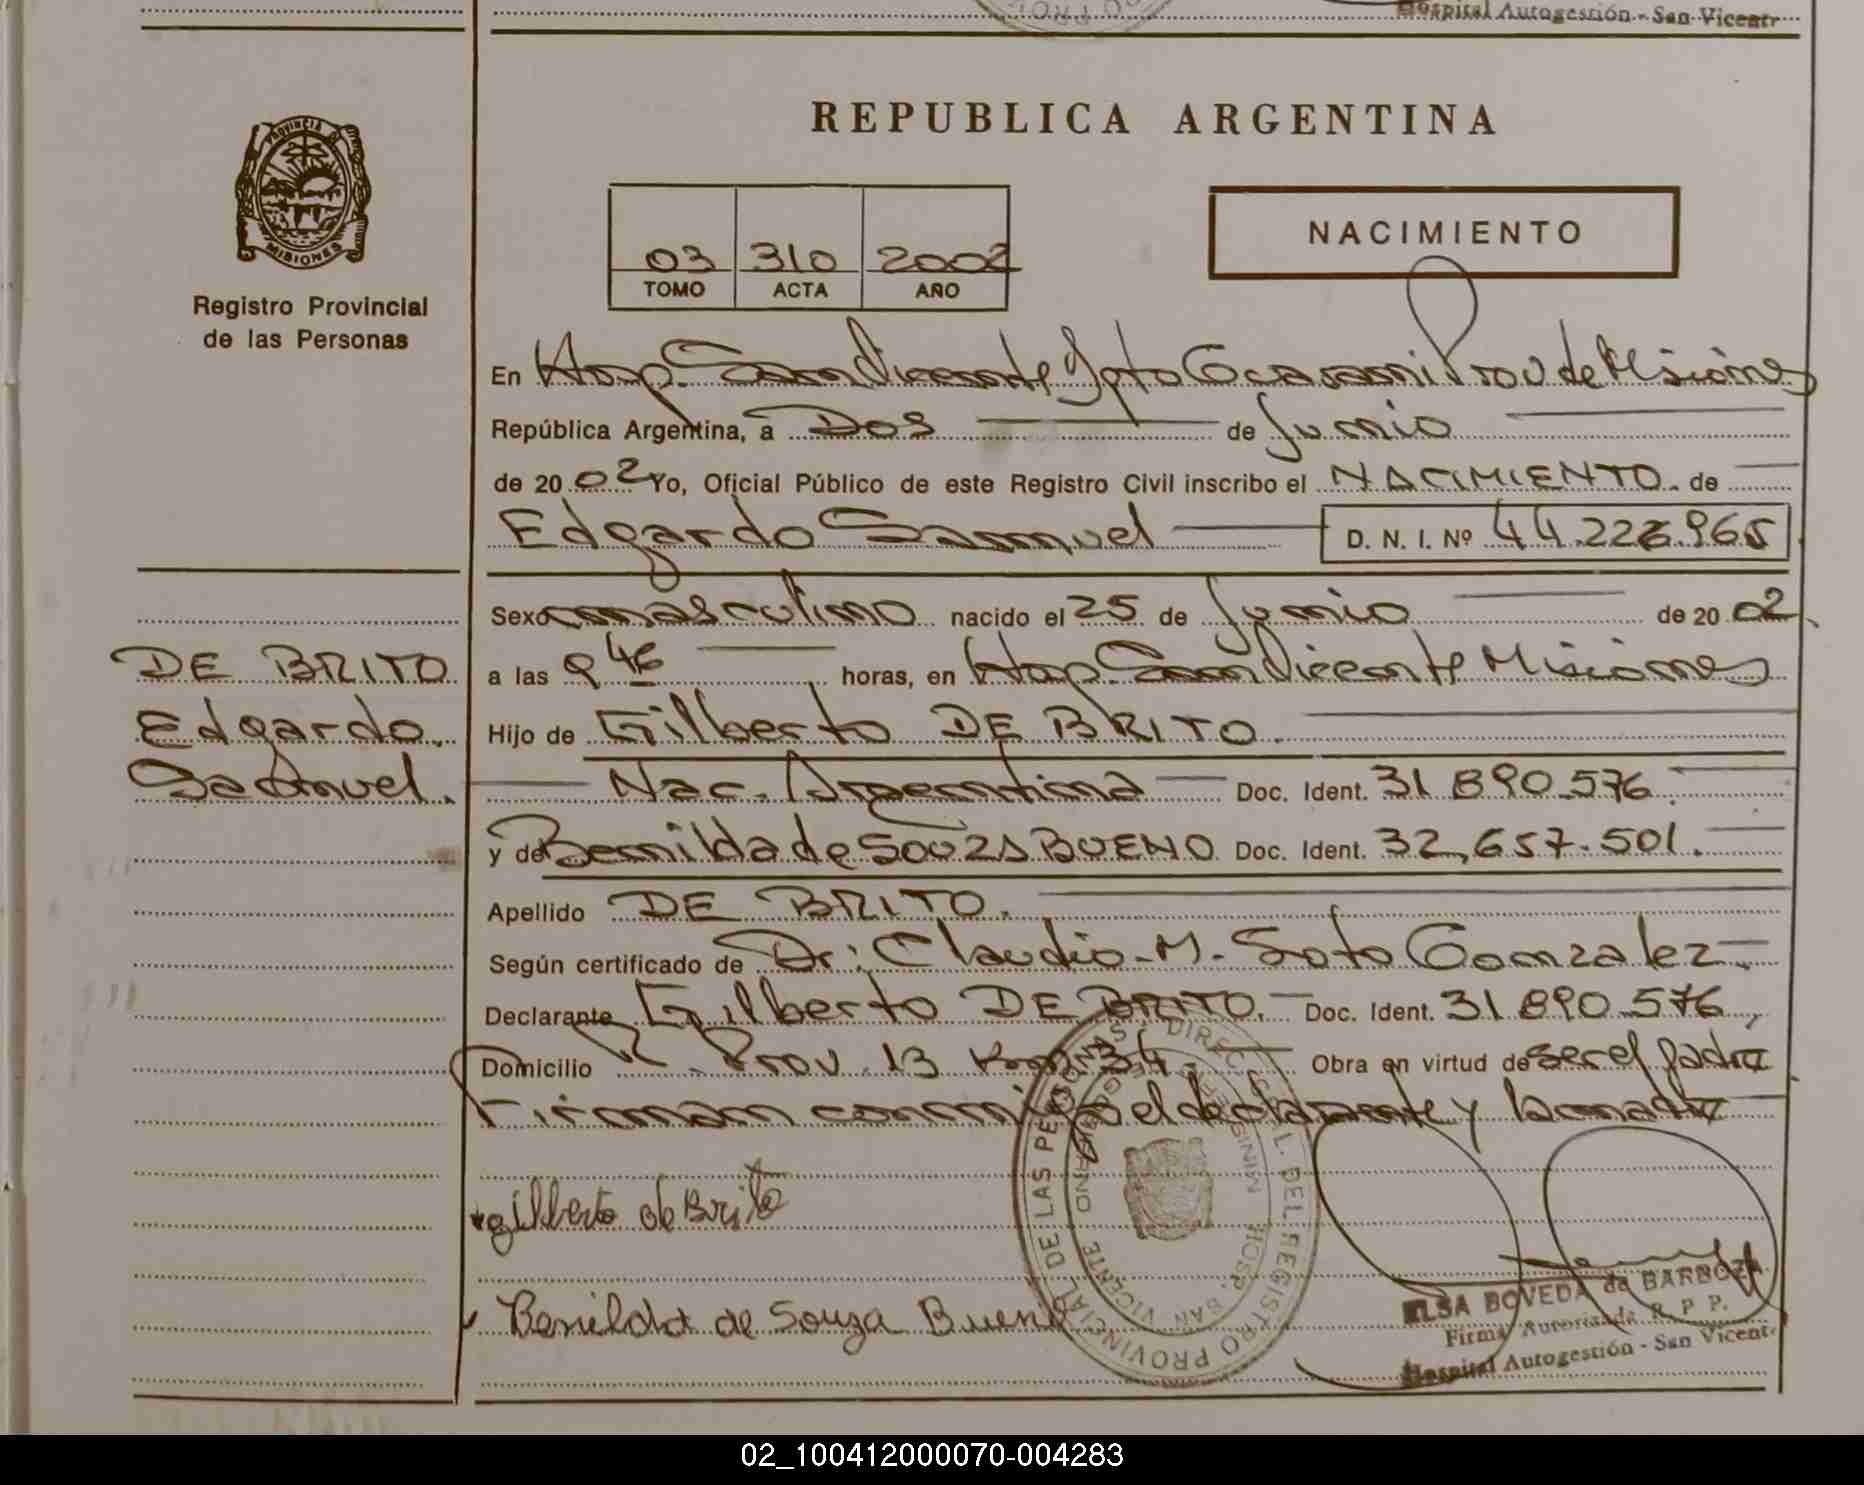 Hospital Autogestión - San Vicent
REPUBLICA ARGENTINA
PROVINCIA DE
MISIONES
Registro Provincial
de las Personas
03 310 2002
TOMO ACTA AÑO
NACIMIENTO
En Hosp. San Vicente Dpto Guarani Prov de Misiones
República Argentina, a Dos de Junio
de 20 02 Yo, Oficial Público de este Registro Civil inscribo el NACIMIENTO de
Edgardo Samuel D. N. I. Nº 44.226.965
Sexo masculino nacido el 25 de Junio de 20 02
DE BRITO
Edgardo
Samuel.
a las horas, en Hosp. San Vicente Misiones
Hijo de Gilberto DE BRITO.
Nac. Argentina Doc. Ident. 31 890.576
y de Benilda de Souza BUENO Doc. Ident. 32,657.501.
Apellido DE BRITO.
Según certificado de Dr: Claudio M. Soto Gonzalez
Declarante Gilberto DE BRITO. Doc. Ident. 31 890.576
Domicilio R. Prov. 13 Km 34 Obra en virtud de ser el padre
Firman conmigo el declarante y la madre
gilberto de Brito
Benilda de Souza Bueno
DIRECC L. DEL REGISTRO PROVINCIAL DE LAS PERSONAS
HOSP. SAN VICENTE
ELSA BOVEDA de BARBOZA
Firma Autorizada R. P. P.
Hospital Autogestión - San Vicent
02_100412000070-004283